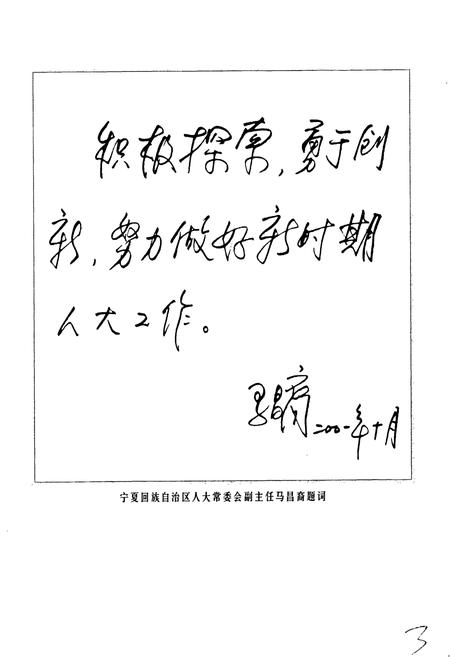 积极探索，勇于创
新，努力做好新时期
人大工作。
马昌裔
二〇〇一年十月
宁夏回族自治区人大常委会副主任马昌裔题词
3